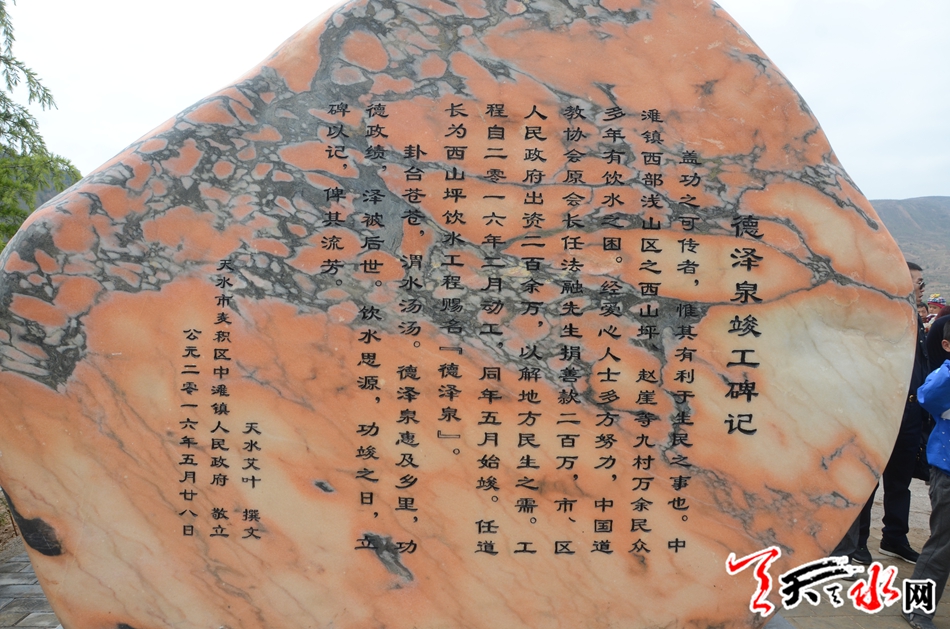 德泽泉竣工碑记
盖功之可传者，惟其有利于生民之事也。中
滩镇西部浅山区之西山坪、赵崖等九村万余民众
多年有饮水之困。经爱心人士多方努力，中国道
教协会原会长任法融先生捐善款二百万，市、区
人民政府出资二百余万，以解地方民生之需。工
程自二零一六年二月动工，同年五月始竣。任道
长为西山坪饮水工程赐名『德泽泉』。
卦台苍苍，渭水汤汤。德泽泉惠及乡里，功
德政绩，泽被后世。饮水思源，功竣之日，立
碑以记，俾其流芳。
天水艾叶 撰文
天水市麦积区中滩镇人民政府 敬立
公元二零一六年五月廿八日
天天水网